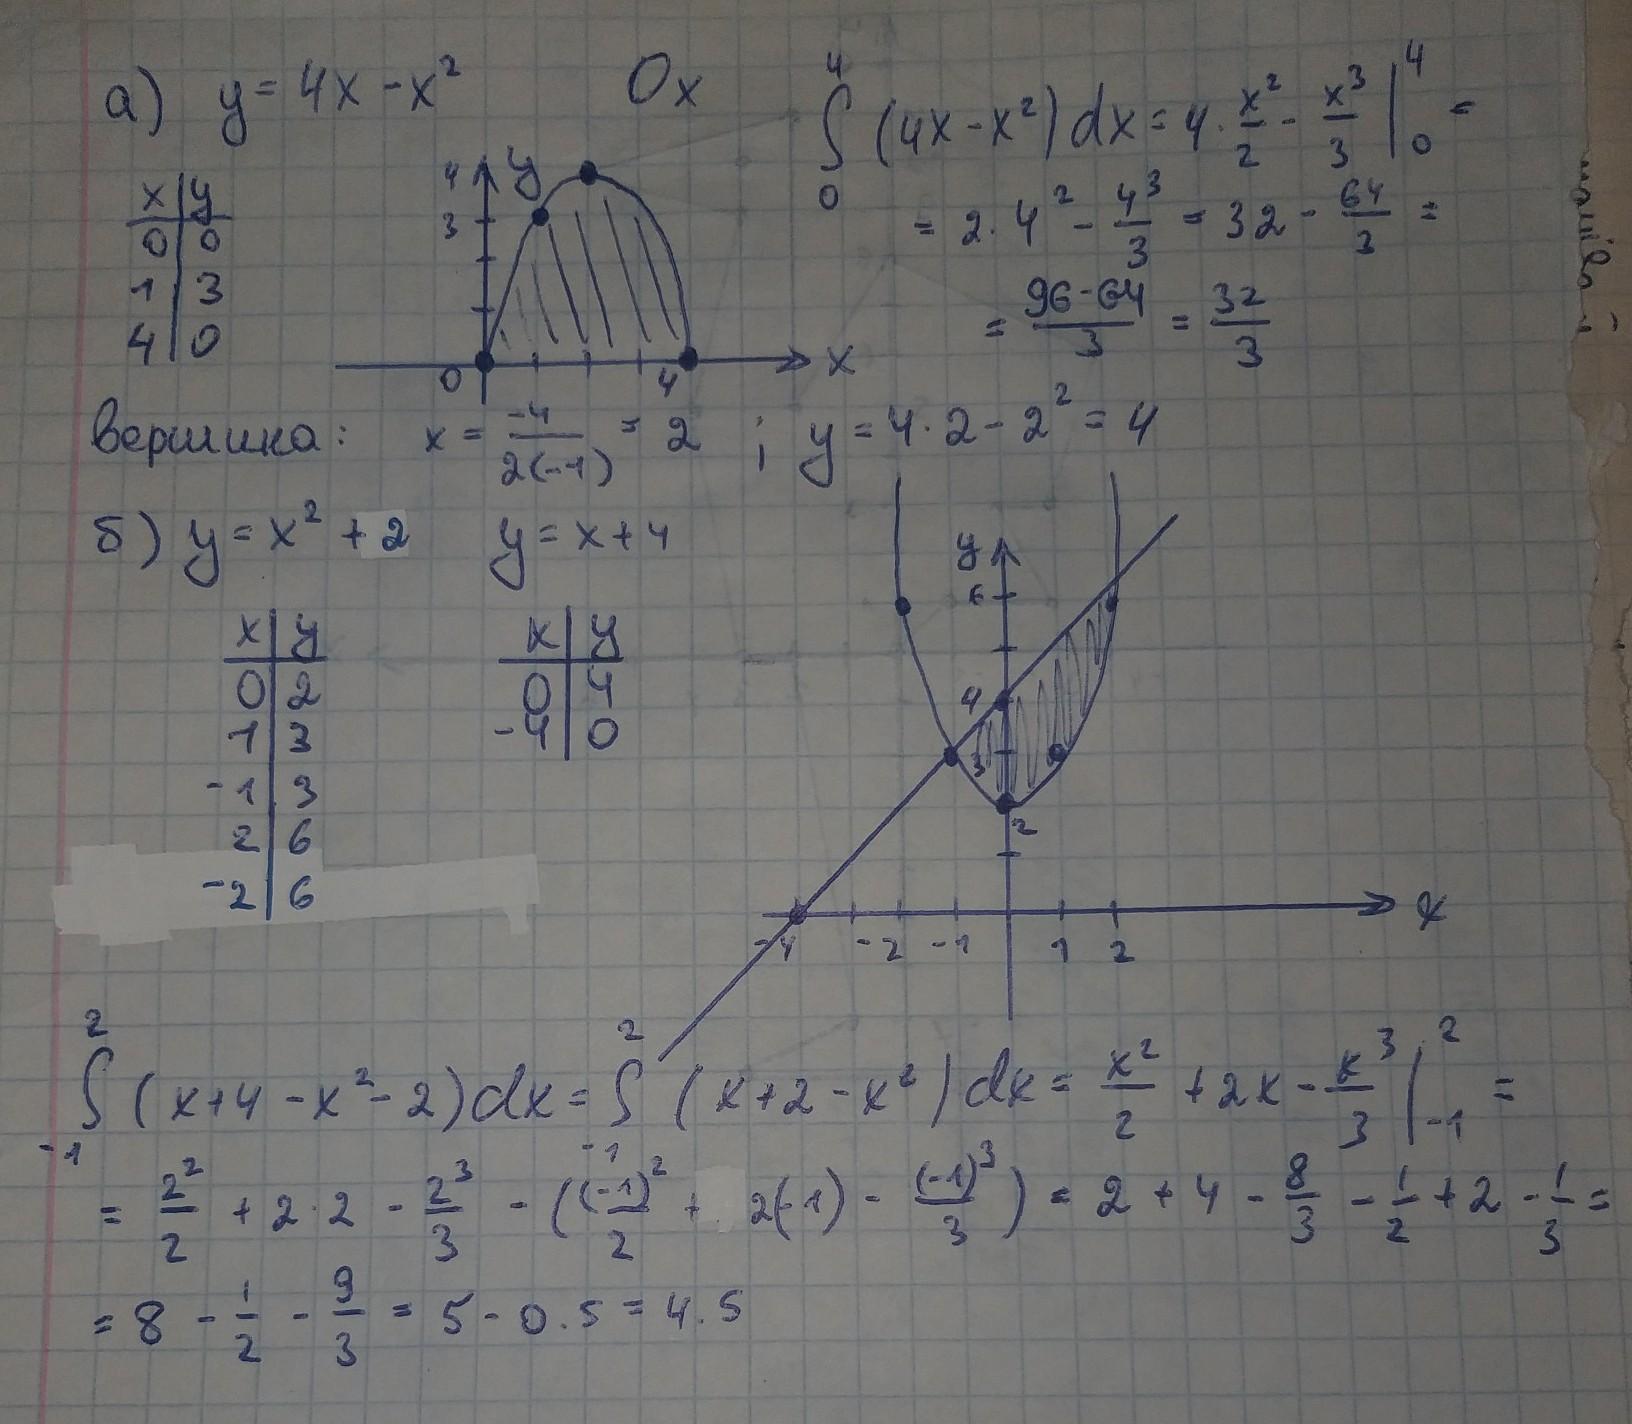 а) y = 4x - x² Ox
∫₀⁴ (4x - x²) dx = 4 · x²/2 - x³/3 |₀⁴ =
= 2 · 4² - 4³/3 = 32 - 64/3 =
= (96 - 64)/3 = 32/3
x | y
0 | 0
1 | 3
4 | 0
y
4
3
0 4 x
вершина: x = -4/(2(-1)) = 2 ; y = 4 · 2 - 2² = 4
б) y = x² + 2 y = x + 4
x | y
0 | 2
1 | 3
-1 | 3
2 | 6
-2 | 6
x | y
0 | 4
-4 | 0
y
6
4
3
2
-4 -2 -1 1 2 x
∫₋₁² (x+4 - x² - 2) dx = ∫₋₁² (x+2 - x²) dx = x²/2 + 2x - x³/3 |₋₁² =
= 2²/2 + 2 · 2 - 2³/3 - ((-1)²/2 + 2(-1) - (-1)³/3) = 2 + 4 - 8/3 - 1/2 + 2 - 1/3 =
= 8 - 1/2 - 9/3 = 5 - 0.5 = 4.5